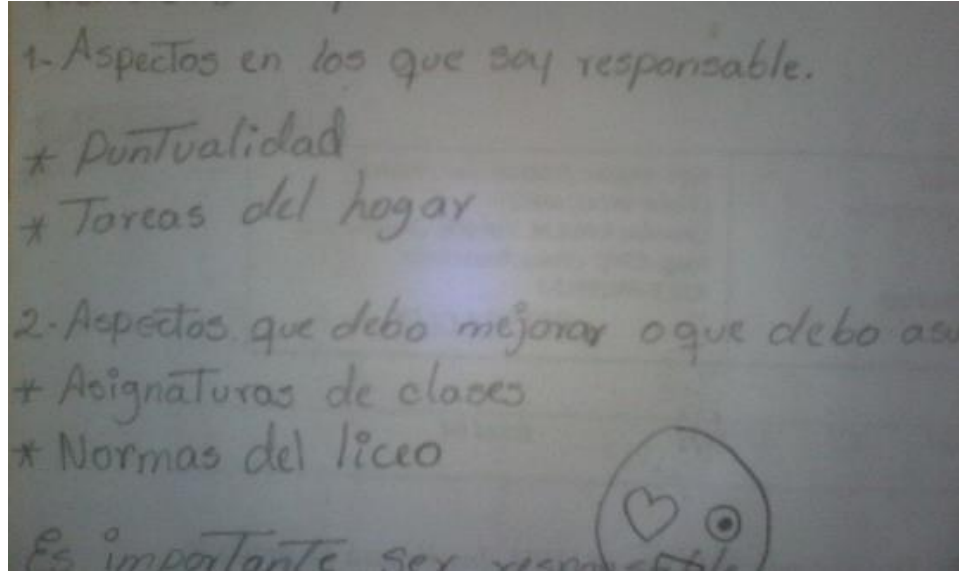 1- Aspectos en los que soy responsable.
* Puntualidad
* Tareas del hogar
2. Aspectos que debo mejorar o que debo asu
* Asignaturas de clases
* Normas del liceo
Es importante ser responsable